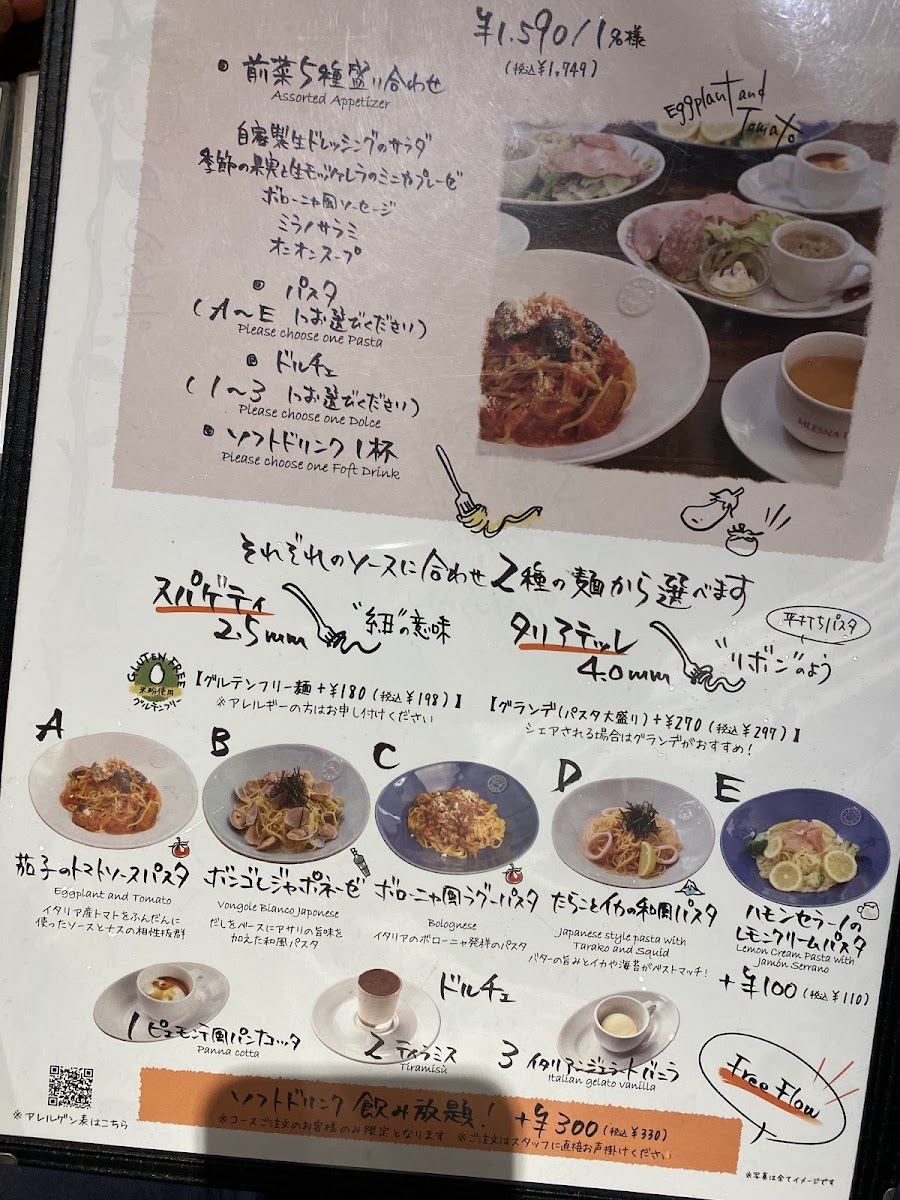 ¥1,590/1名様
(税込¥1,749)
前菜5種盛り合わせ
Assorted Appetizer
Eggplant and
Tomato
自家製生ドレッシングのサラダ
季節の果実と生モッツァレラのミニカプレーゼ
ボローニャ風ソーセージ
ミラノサラミ
オニオンスープ
パスタ
(A〜E よりお選びください)
Please choose one Pasta
ドルチェ
(1〜3 よりお選びください)
Please choose one Dolce
ソフトドリンク1杯
Please choose one Foft Drink
MLESNA T
それぞれのソースに合わせ2種の麺から選べます
スパゲティ
2.5mm
"紐"の意味
タリアテッレ
4.0mm
"リボン"のよう
平打ちパスタ
GLUTEN FREE
米粉使用
グルテンフリー
【グルテンフリー麺+¥180(税込¥198)】
※アレルギーの方はお申し付けください
【グランデ(パスタ大盛り)+¥270(税込¥297)】
シェアされる場合はグランデがおすすめ!
A
茄子のトマトソースパスタ
Eggplant and Tomato
イタリア産トマトをふんだんに
使ったソースとナスの相性抜群
B
ボンゴレジャポネーゼ
Vongole Bianco Japonese
だしをソースにアサリの旨味を
加えた和風パスタ
C
ボローニャ風ラグーパスタ
Bolognese
イタリアのボローニャ発祥のパスタ
D
たらことイカの和風パスタ
Japanese style pasta with
Tarako and Squid
バターの旨みとイカや海苔がベストマッチ!
E
ハモンセラーノの
レモンクリームパスタ
Lemon Cream Pasta with
Jamón Serrano
+¥100(税込¥110)
ドルチェ
1 ピエモンテ風パンナコッタ
Panna cotta
2 ティラミス
Tiramisù
3 イタリアンジェラートバニラ
Italian gelato vanilla
Free Flow
ソフトドリンク飲み放題! +¥300(税込¥330)
※コースご注文のお客様のみ限定となります ※ご注文はスタッフに直接お声掛けください
※アレルゲン表はこちら
※写真は全てイメージです